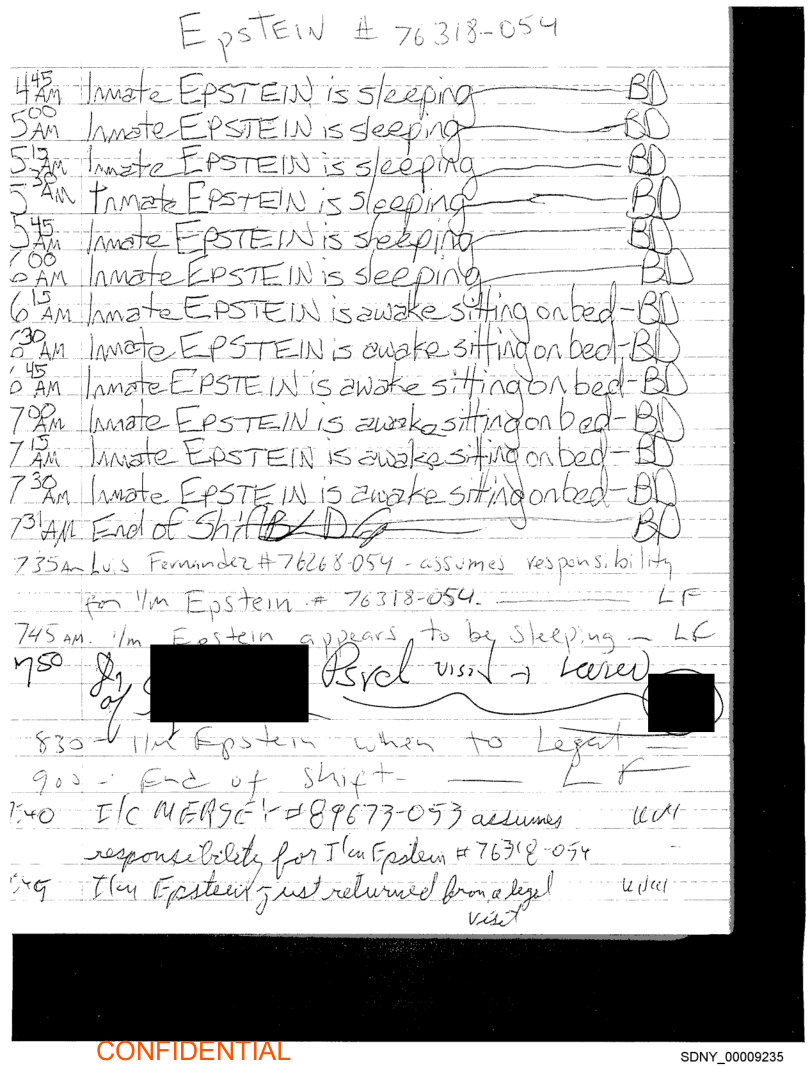 EPSTEIN # 76318-054
4 45 AM Inmate EPSTEIN is sleeping BD
5 00 AM Inmate EPSTEIN is sleeping BD
5 15 AM Inmate EPSTEIN is sleeping BD
5 30 AM Inmate EPSTEIN is sleeping BD
5 45 AM Inmate EPSTEIN is sleeping BD
6 00 AM Inmate EPSTEIN is sleeping BD
6 15 AM Inmate EPSTEIN is awake sitting on bed - BD
6 30 AM Inmate EPSTEIN is awake sitting on bed - BD
6 45 AM Inmate EPSTEIN is awake sitting on bed - BD
7 00 AM Inmate EPSTEIN is awake sitting on bed - BD
7 15 AM Inmate EPSTEIN is awake sitting on bed - BD
7 30 AM Inmate EPSTEIN is awake sitting on bed - BD
7 31 AM End of Shift BD
735 AM Luis Fernandez # 76268-054 - assumes responsibility
for I/m Epstein # 76318-054. LF
745 AM. I/m Epstein appears to be sleeping - LF
750 Psych visit
830 - I/m Epstein when to Legal
900 - End of Shift - LF
:40 I/C MERSEY # 89673-053 assumes
responsibility for I/m Epstein # 76318-054
I/m Epstein just returned from a legal
visit
CONFIDENTIAL
SDNY_00009235